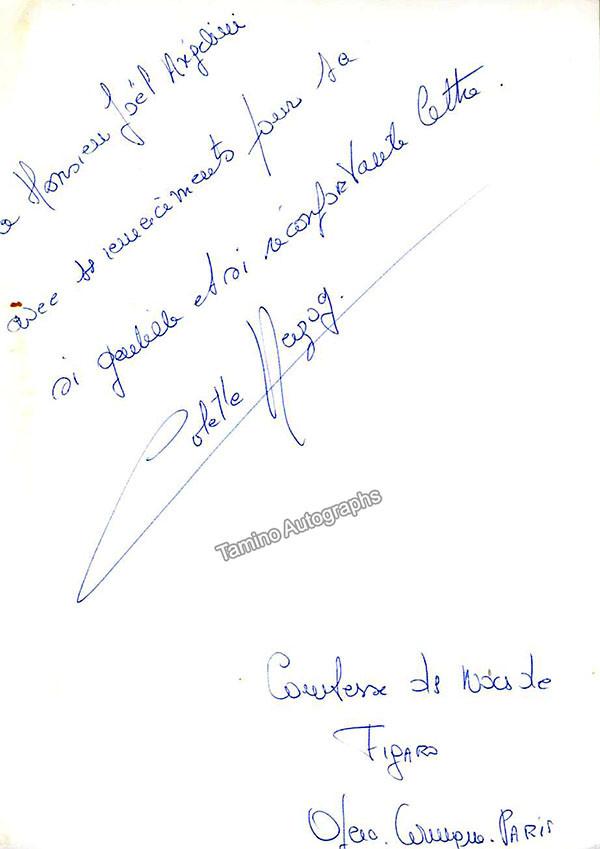 a Monsieur Joël
avec ts remerciements pour sa
si gentille et si réconfortante lettre.
Colette Herzog.
Tamino Autographs
Comtesse ds Noces de
FIGARO
Opéra. Comique. PARIS